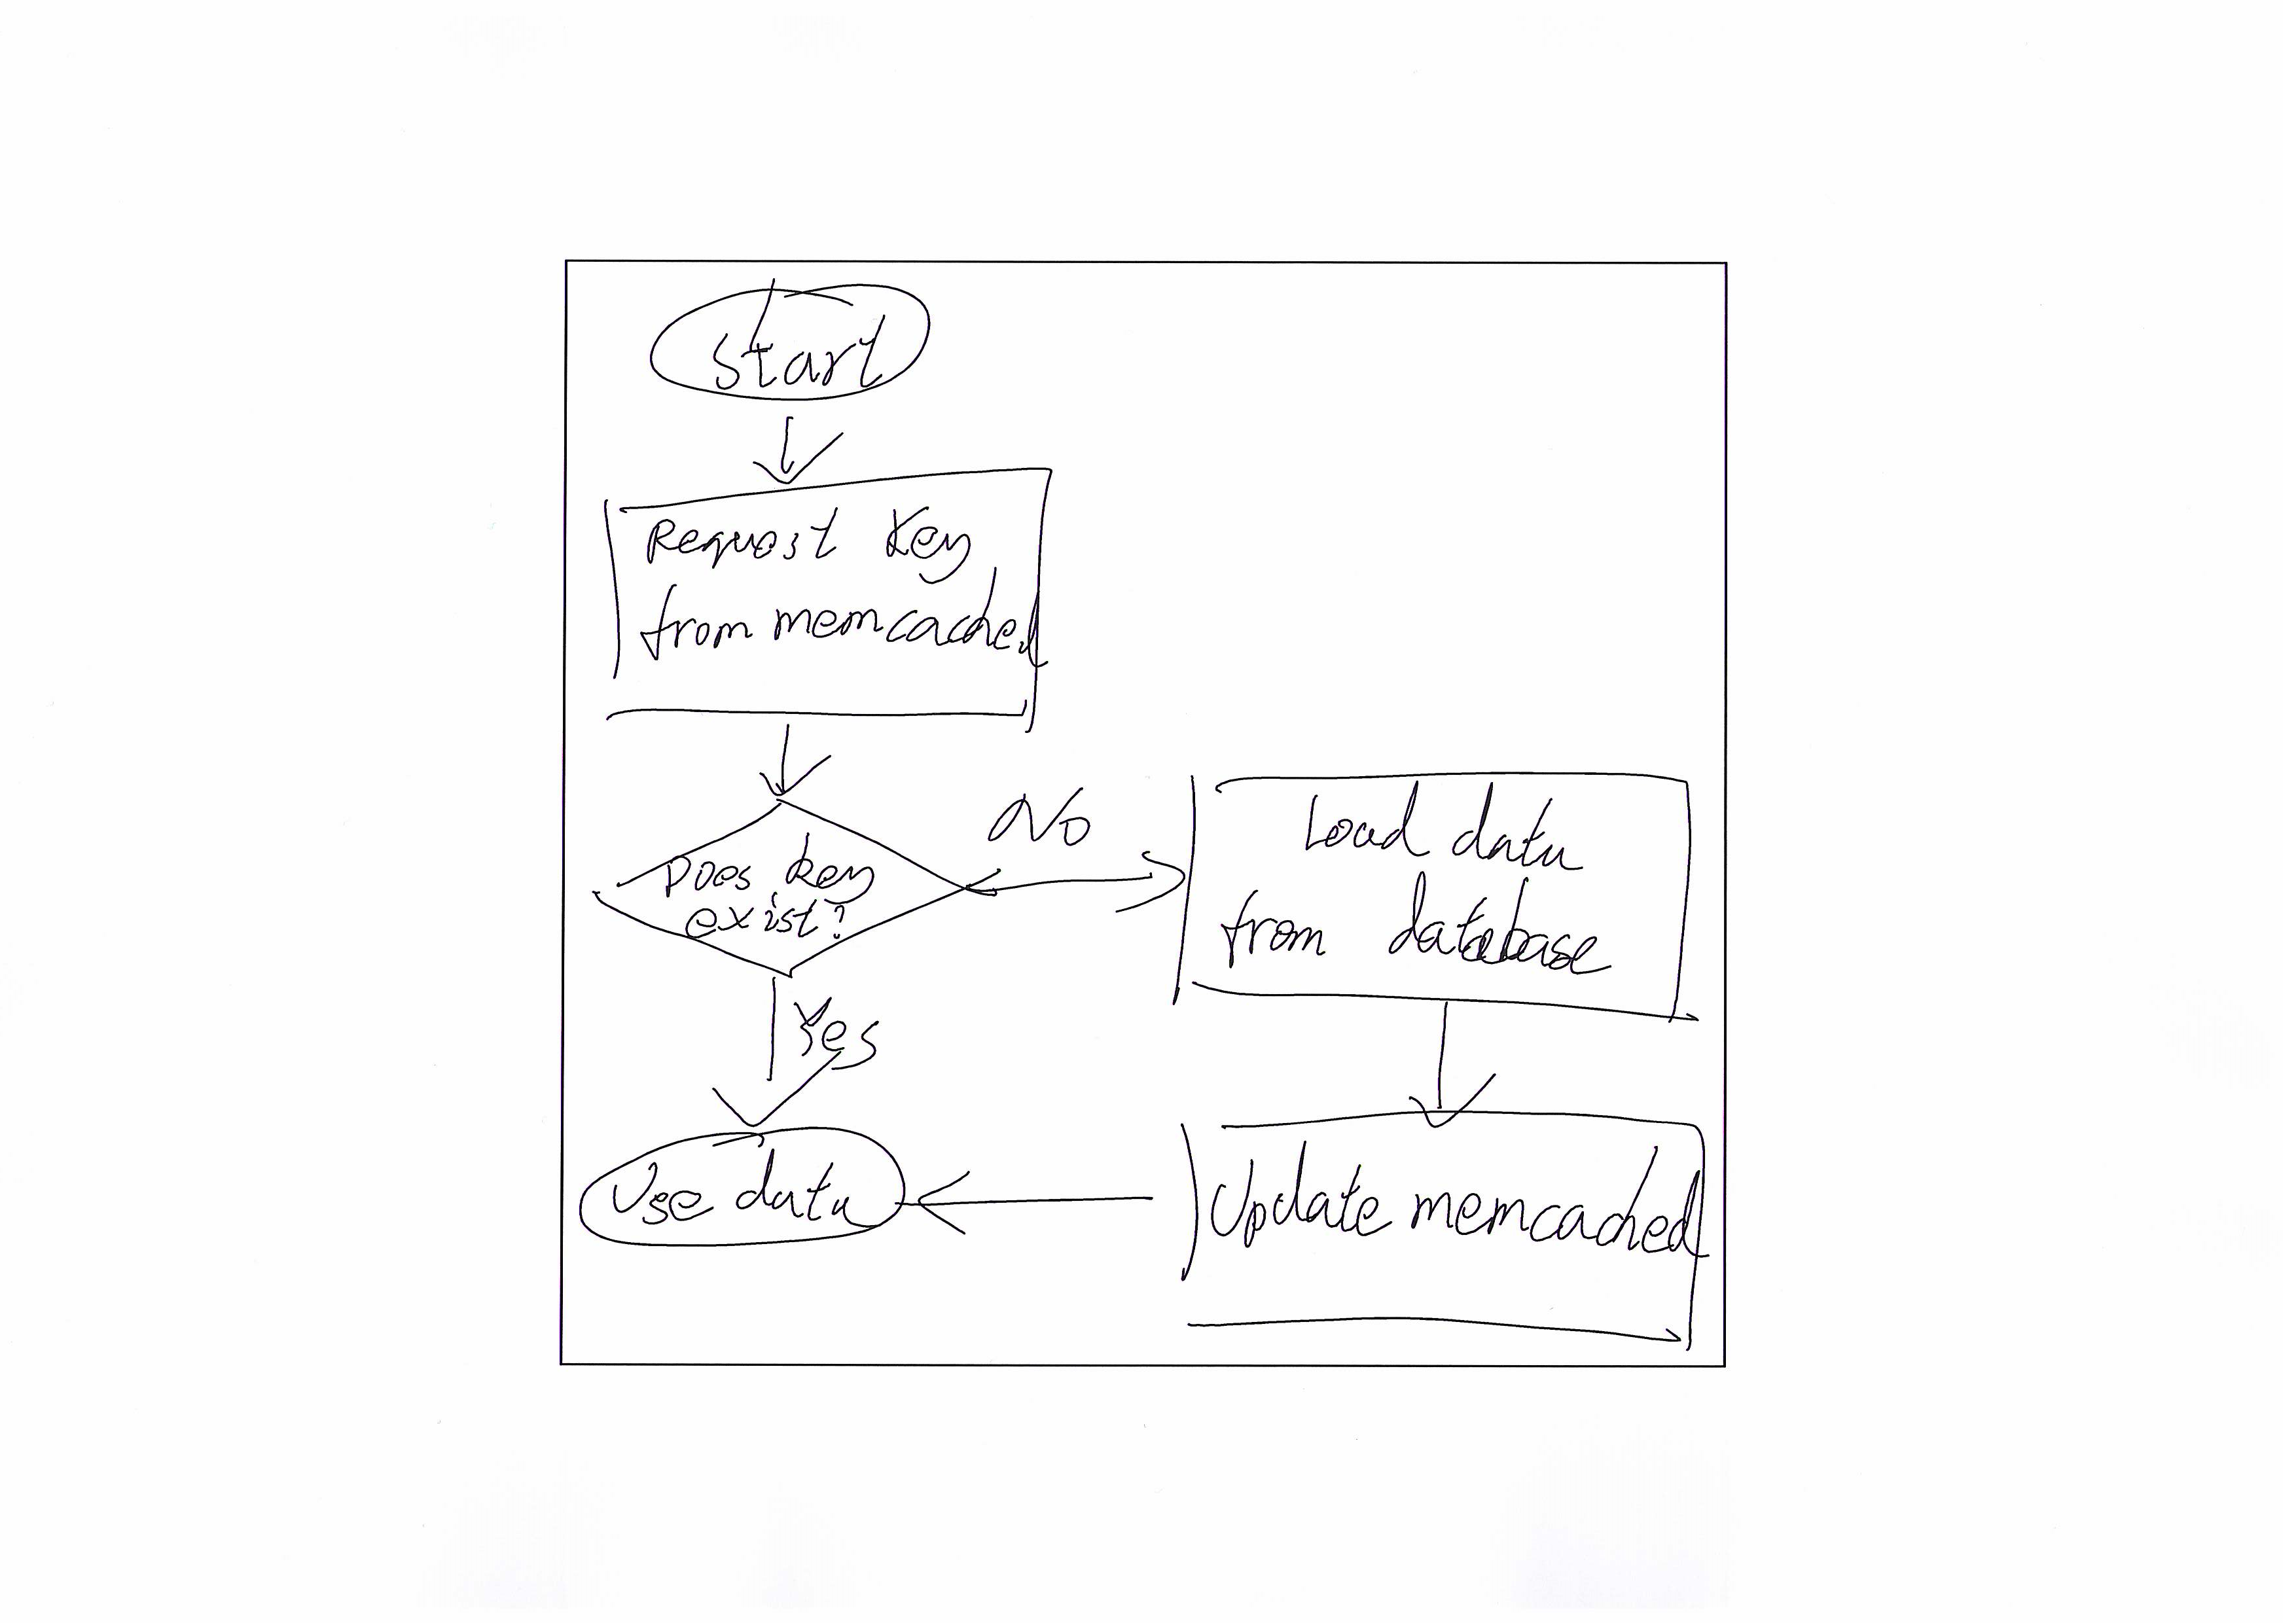 start
Request Key
from memcached
Does key
exist?
No
Load data
from database
Yes
Use data
Update memcached